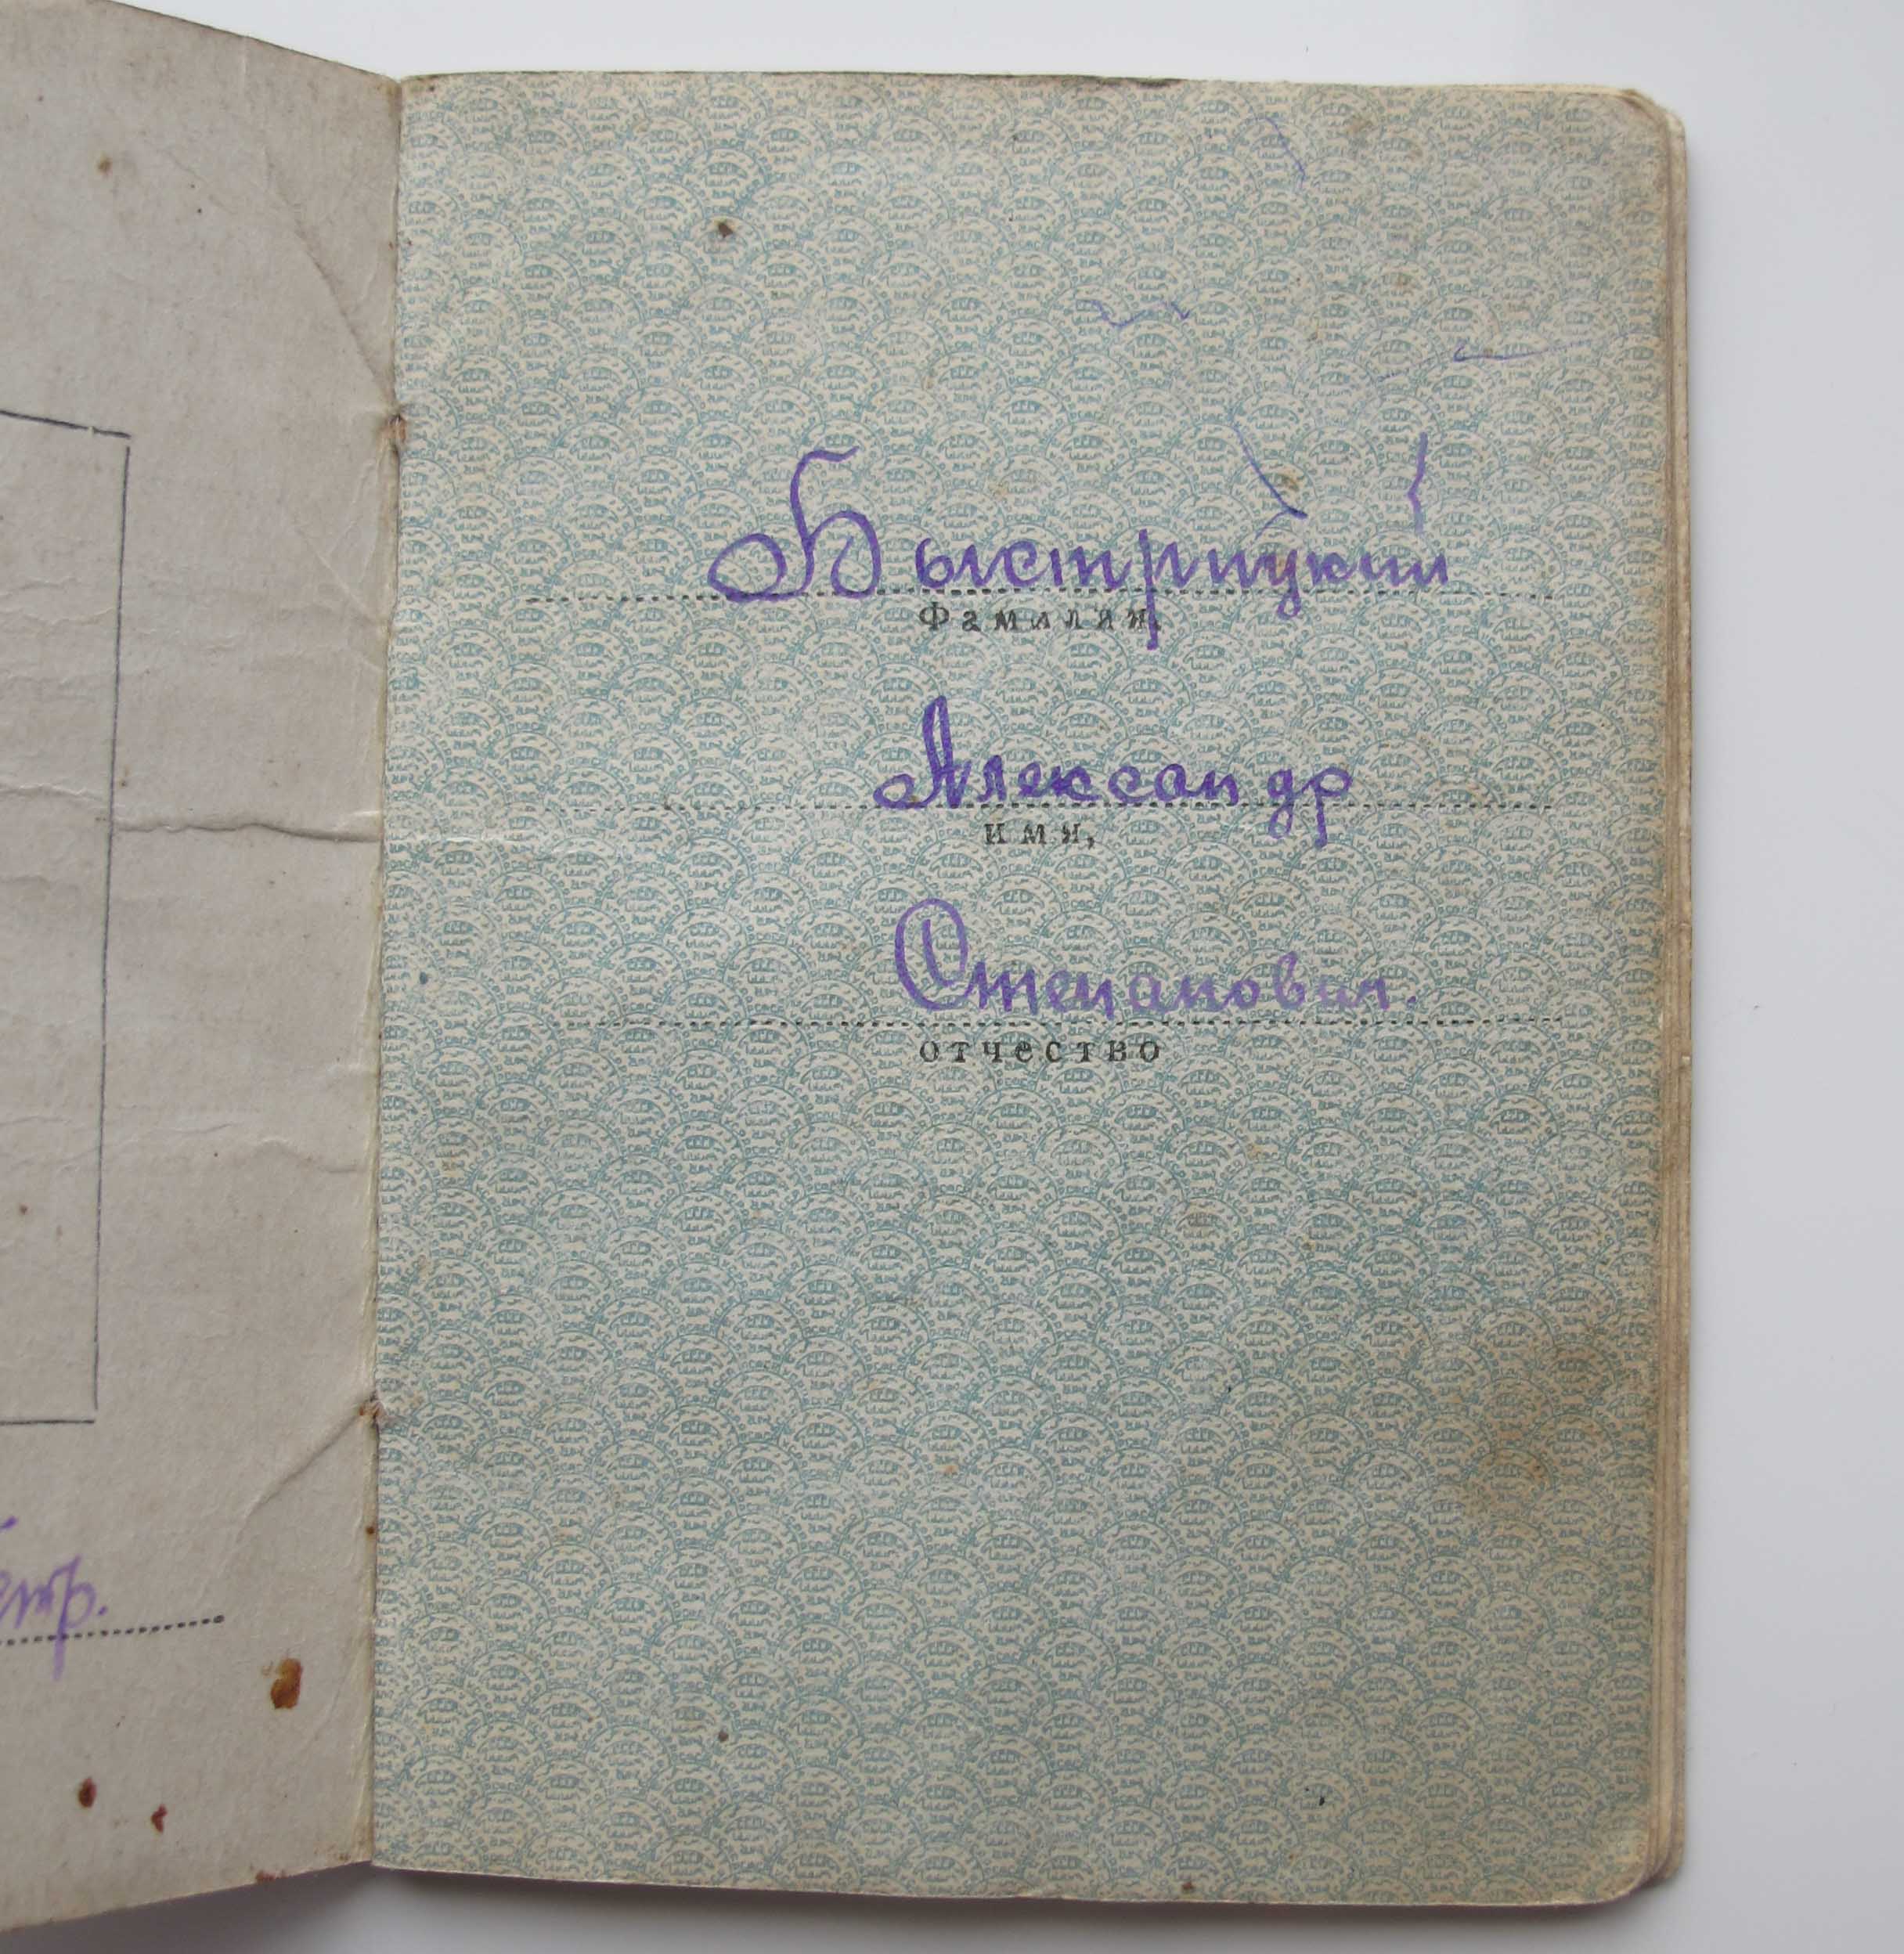 Быстрицкий
Фамилия,
Александр
имя,
Степанович.
отчество